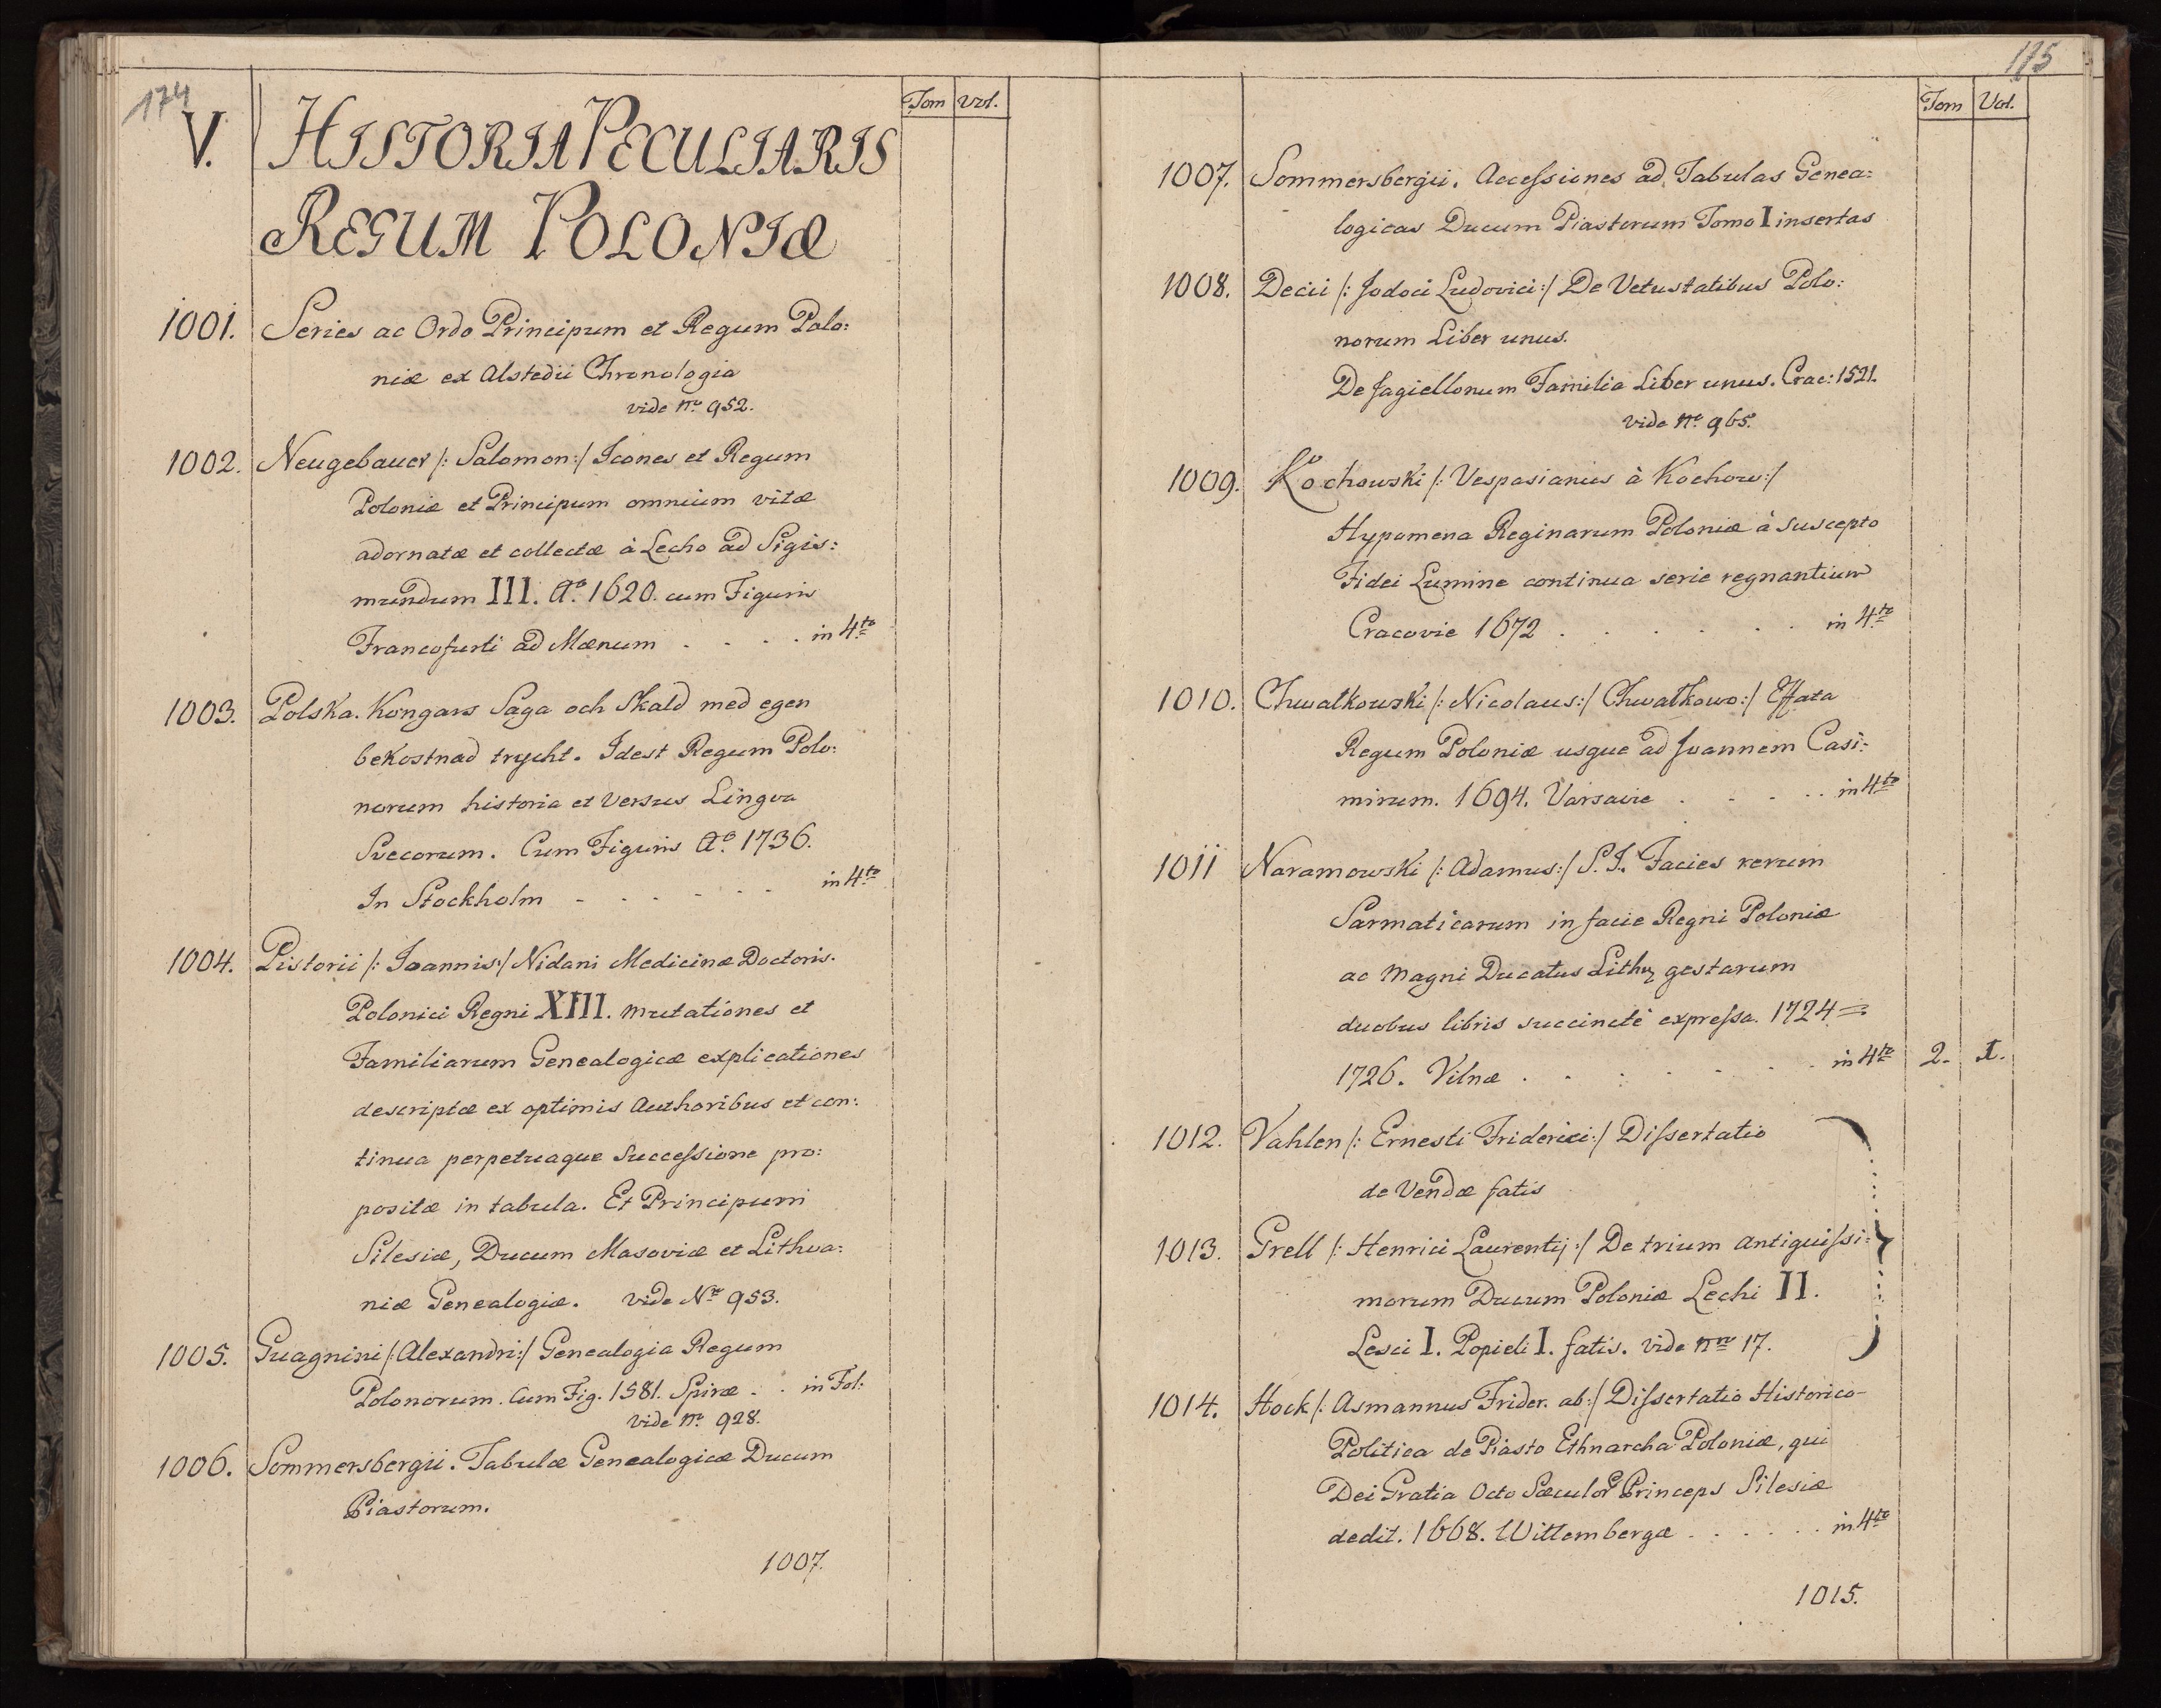 174
Tom Vol.
V. HISTORIA PECULIARIS
REGUM POLONIÆ
1001. Series ac Ordo Principum et Regum Polo:
niæ ex Alstedii Chronologia
vide nro 952.
1002. Neugebauer /: Salomon:/ Icones et Regum
Poloniæ et Principum omnium vitæ
adornatæ et collectæ à Lecho ad Sigis:
mundum III. Ao. 1620. cum Figuris
Francofurti ad Mænum . . . . in 4to
1003. Polska. Kongars Saga och Skald med egen
bekostnad trycht. Idest Regum Polo:
norum historia et versus Lingva
Svecorum. Cum Figuris Ao. 1736.
In Stockholm - . . . - . . in 4to
1004. Pistorii /: Ioannis:/ Nidani Medicinæ Doctoris.
Polonici Regni XIII. mutationes et
Familiarum Genealogicæ explicationes
descriptæ ex optimis Authoribus et con:
tinua perpetuaque Successione pro:
positæ in tabula. Et Principum
Silesiæ, Ducum Masoviæ et Lithva:
niæ Genealogiæ. vide Nro 953.
1005. Guagnini /: Alexandri:/ Genealogia Regum
Polonorum. Cum Fig. 1581. Spiræ . . in Fol:
vide nro 928.
1006. Sommersbergii. Tabulæ Genealogicæ Ducum
Piastorum.
1007.
175
Tom Vol.
1007. Sommersbergii. Accessiones ad Tabulas Genea:
logicas Ducum Piastorum Tomo I insertas
1008. Decii /: Jodoci Ludovici:/ De Vetustatibus Polo:
norum Liber unus.
De Jagiellonum Familia Liber unus. Crac: 1521.
vide nro 965.
1009. Kochowski /: Vespasianus à Kochow:/
Hypomena Reginarum Poloniæ à suscepto
Fidei Lumine continua serie regnantium
Cracovie 1672 . . . . . . . in 4to
1010. Chwatkowski /: Nicolaus:/ Chwatkowo:/ Effata
Regum Poloniæ usque ad Joannem Casi:
mirum. 1694. Varsavie . . . . . in 4to
1011 Naramowski /: Adamus:/ S. I. Facies rerum
Sarmaticarum in facie Regni Poloniæ
ac Magni Ducatus Lithu gestarum
duobus libris succinctè expressa. 1724=
1726. Vilnæ . . . . . . . in 4to 2. I.
1012. Vahlen /: Ernesti Friderici:/ Dissertatio
de Vendæ fatis
1013. Grell /: Henrici Laurentij:/ De trium Antiquissi:
morum Ducum Poloniæ Lechi II.
Lesci I. Popieli I. fatis. vide nro 17.
1014. Hock /: Asmannus Frider. ab:/ Dissertatio Historico-
Politica de Piasto Ethnarcha Poloniæ, qui
Dei Gratia Octo Sæculor Princeps Silesiæ
dedit. 1668. Wittembergæ . . . . . . in 4to
1015.